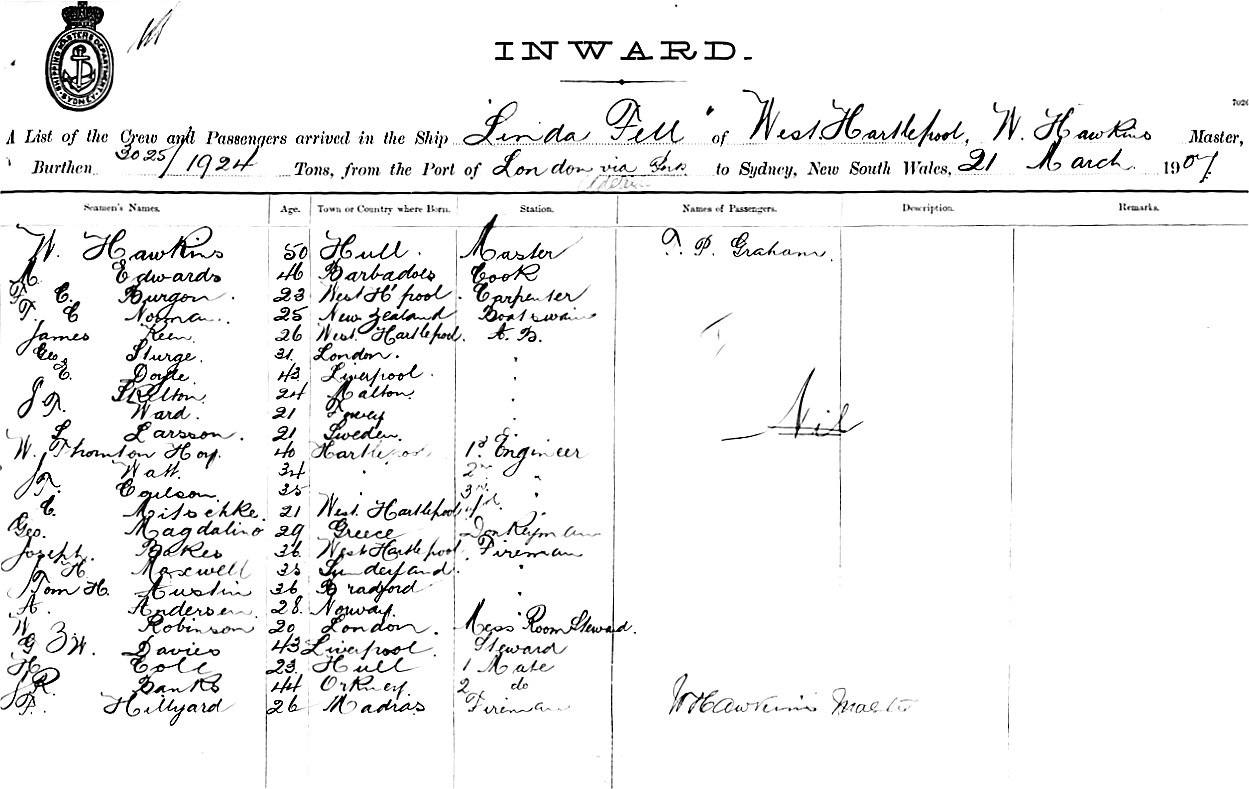 SHIPPING MASTERS DEPARTMENT SYDNEY
INWARD.
7020
A List of the Crew and Passengers arrived in the Ship "Linda Fell" of West Hartlepool, W. Hawkins Master,
Burthen 3025/1924 Tons, from the Port of London via to Sydney, New South Wales, 21 March 1907
Seamen's Names. Age. Town or Country where Born. Station. Names of Passengers. Description. Remarks.
W. Hawkins 50 Hull. Master T. P. Graham.
M. Edwards 46 Barbadoes Cook
F. C. Burgon. 23 West H'pool. Carpenter
T. C Norman. 25 New Zealand Boatswain
James Keen. 26 West. Hartlepool. A. B.
Geo. Sturge. 31. London. "
E. Doyle. 43 Liverpool. "
Skelton 24 Malton. "
J. F. Ward. 21 Fowey "
L. Larsson. 21 Sweden. "
Nil
W. Thornton Hoy. 40 Hartlepool 1st Engineer
Watt. 34 " 2nd "
J. F. 35 3rd "
C. Mitschke. 21 West. Hartlepool 4th "
Geo. Magdalino 29 Greece Donkeyman
Joseph. Bakes 36 West Hartlepool. Fireman
T. H. Maxwell 35 Sunderland. "
Tom H. Austin 36 Bradford "
A. Andersen. 28. Norway. "
W. Robinson 20 London. Mess Room Steward.
G. W. Davies 43 Liverpool. Steward
H. Cole 23. Hull 1 Mate
J. R. Banks 44 Orkney. 2 do
F. Hillyard 26 Madras Fireman
W Hawkins Master